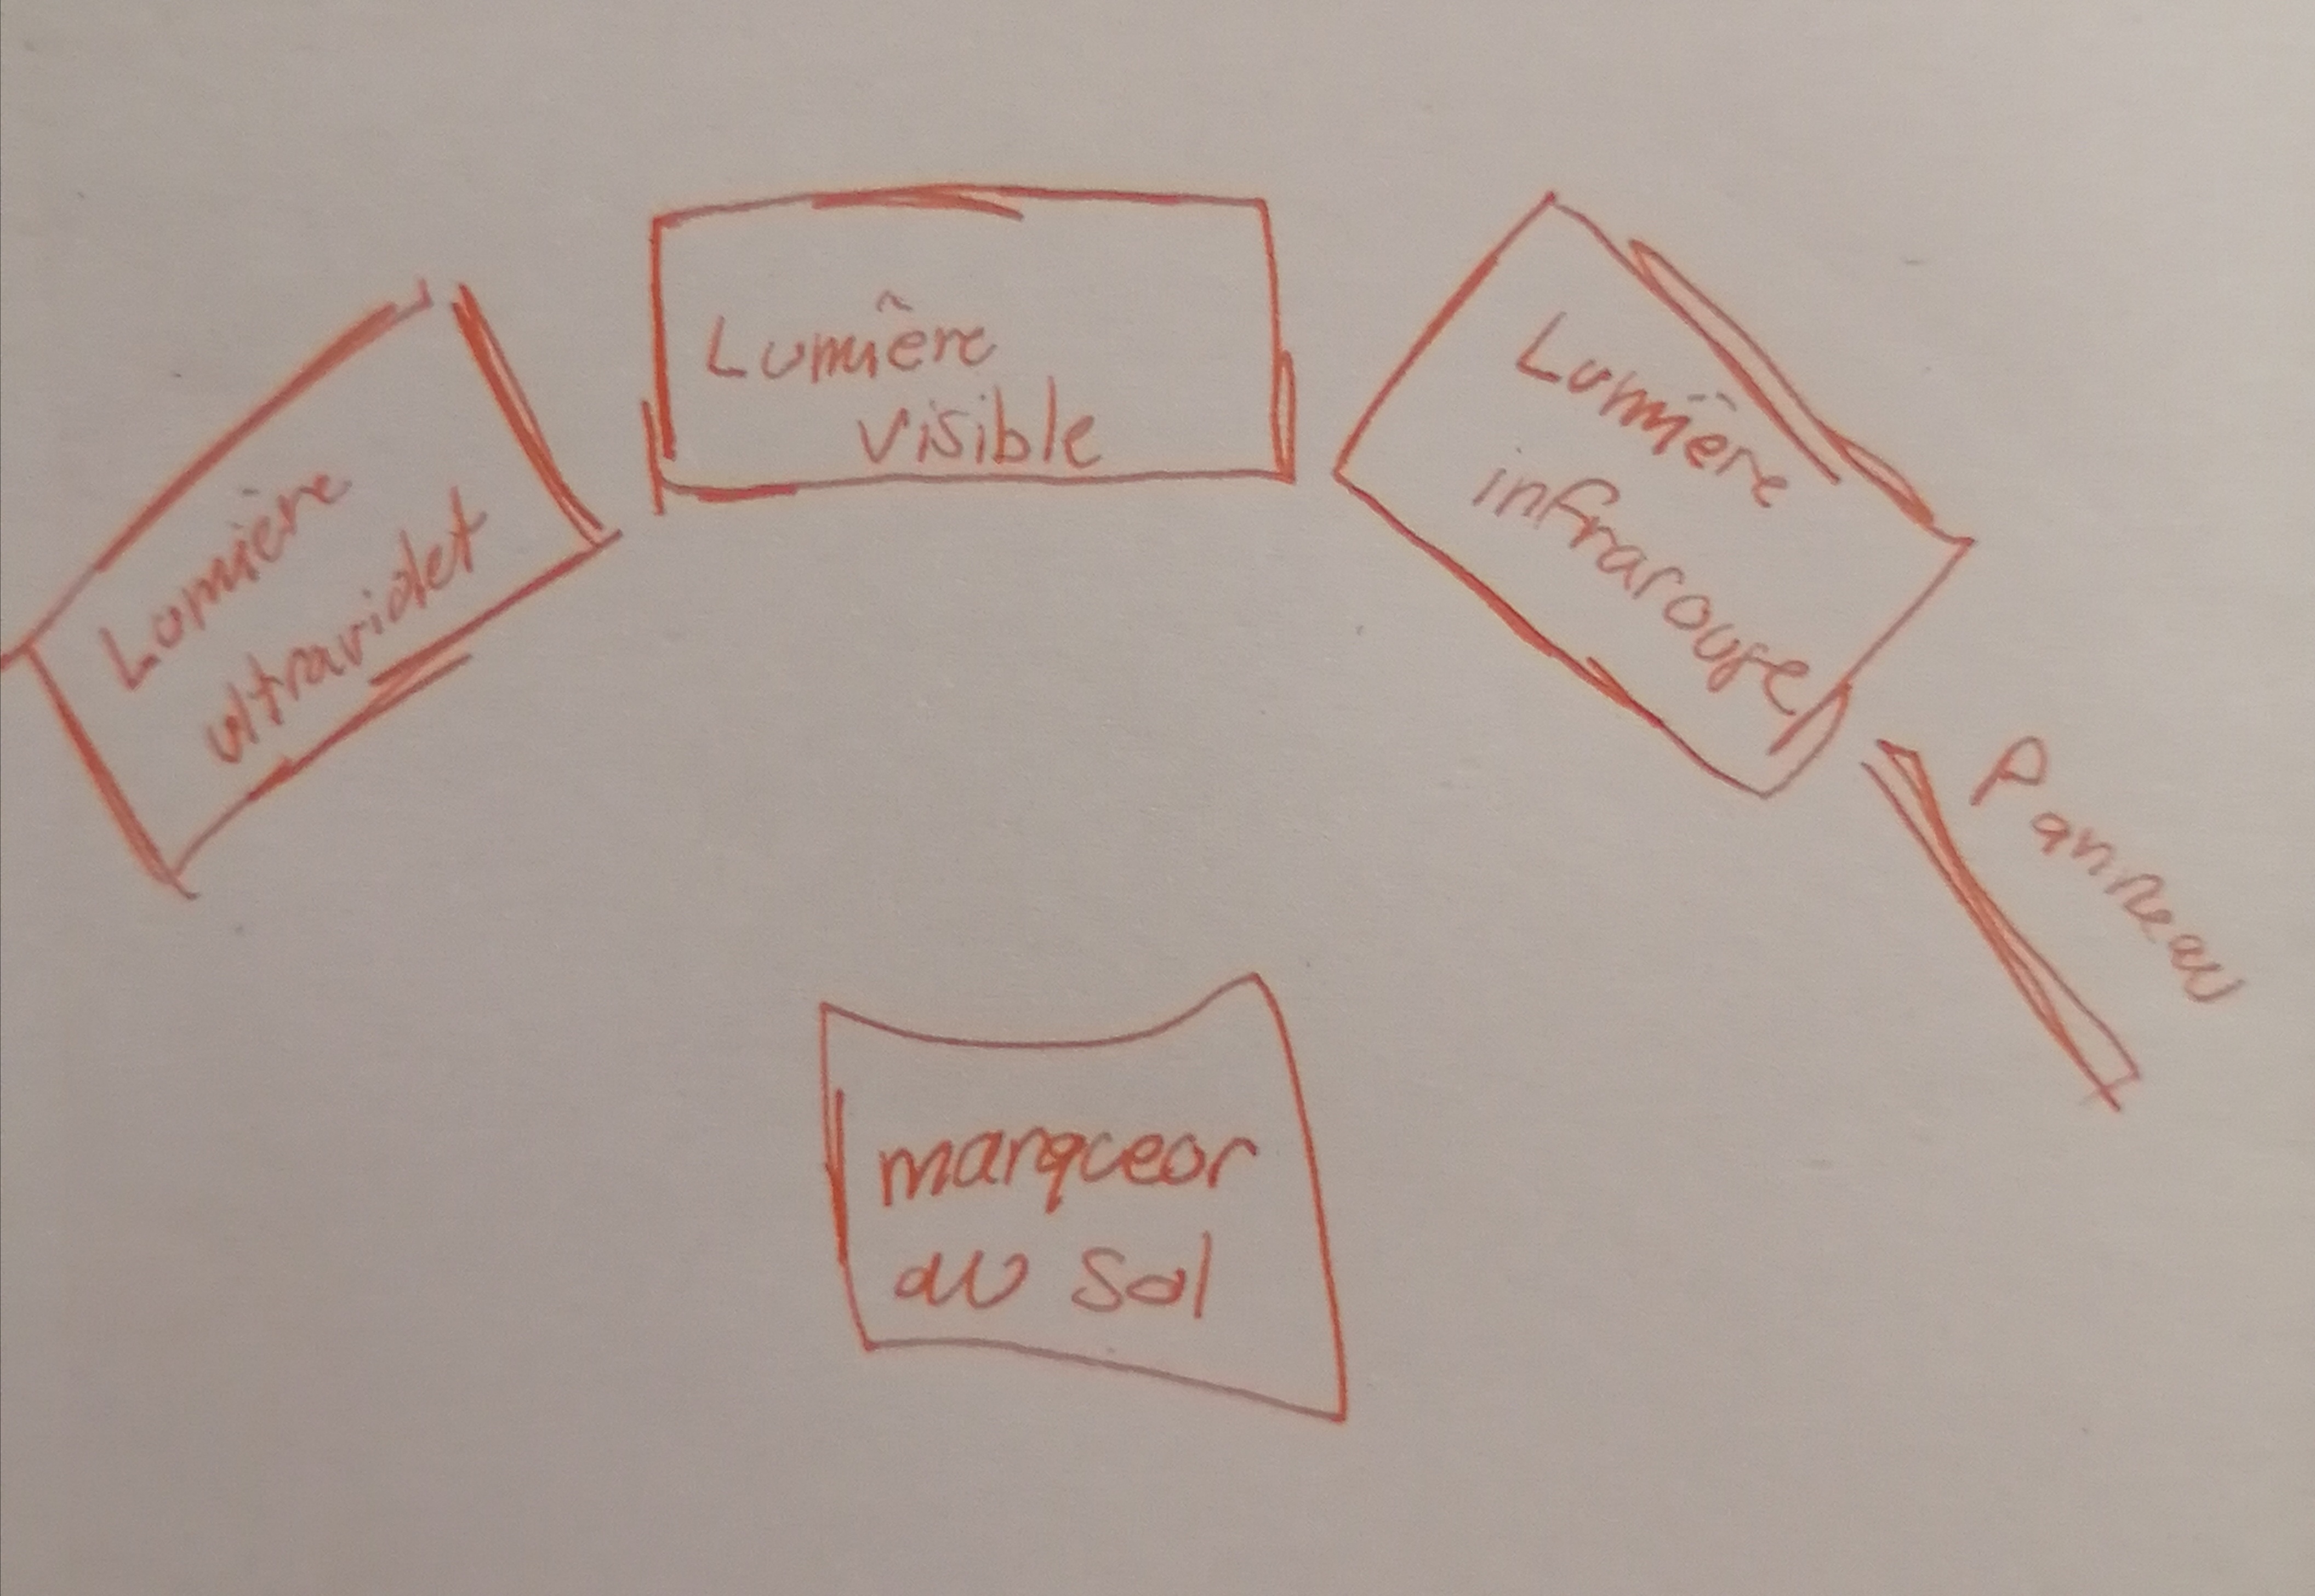 Lumière
ultraviolet
Lumière
visible
Lumière
infrarouge
Panneau
marqueor
au sol